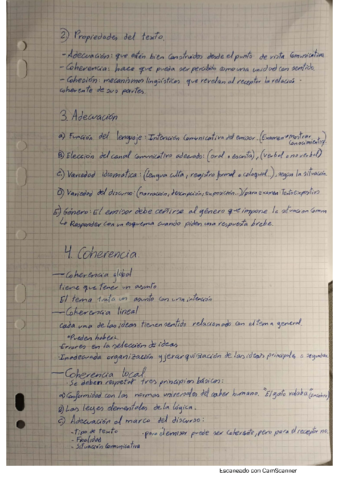 2) Propiedades del texto.
- Adecuación: que estén bien construidos desde el punto de vista comunicativo
- Coherencia: hace que pueda ser percibido como una unidad con sentido.
- Cohesión: mecanismos lingüísticos que revelan al receptor la relación
coherente de sus partes.
3. Adecuación
A) Función del lenguaje - Intención comunicativa del emisor. (Examen → mostrar conocimientos)
B) Elección del canal comunicativo adecuado: (oral o escrito), (verbal o no verbal)
C) Variedad idiomática: (Lengua culta, registro formal o coloquial), según la situación
D) Variedad del discurso (narración, descripción, exposición...) para examen Texto Expositivo
E) Género: El emisor debe ceñirse al género que impone la situación
↳ Responder con un esquema cuando piden una respuesta breve.
4. Coherencia
— Coherencia global
tiene que tener un asunto
El tema: un asunto con una intención
— Coherencia lineal
cada una de las ideas tienen sentido relacionado con el tema general.
• Pueden haber:
Errores en la selección de ideas
Inadecuada organización y jerarquización de las ideas principales o segundarias
— Coherencia local
- Se deben respetar tres principios básicos:
A) Conformidad con las normas universales del saber humano. "El gato relincha"
B) Las leyes elementales de la lógica.
C) Adecuación al marco del discurso:
- tipo de texto
- Finalidad
- Situación comunicativa
para el emisor puede ser coherente, pero para el receptor no.
Escaneado con CamScanner